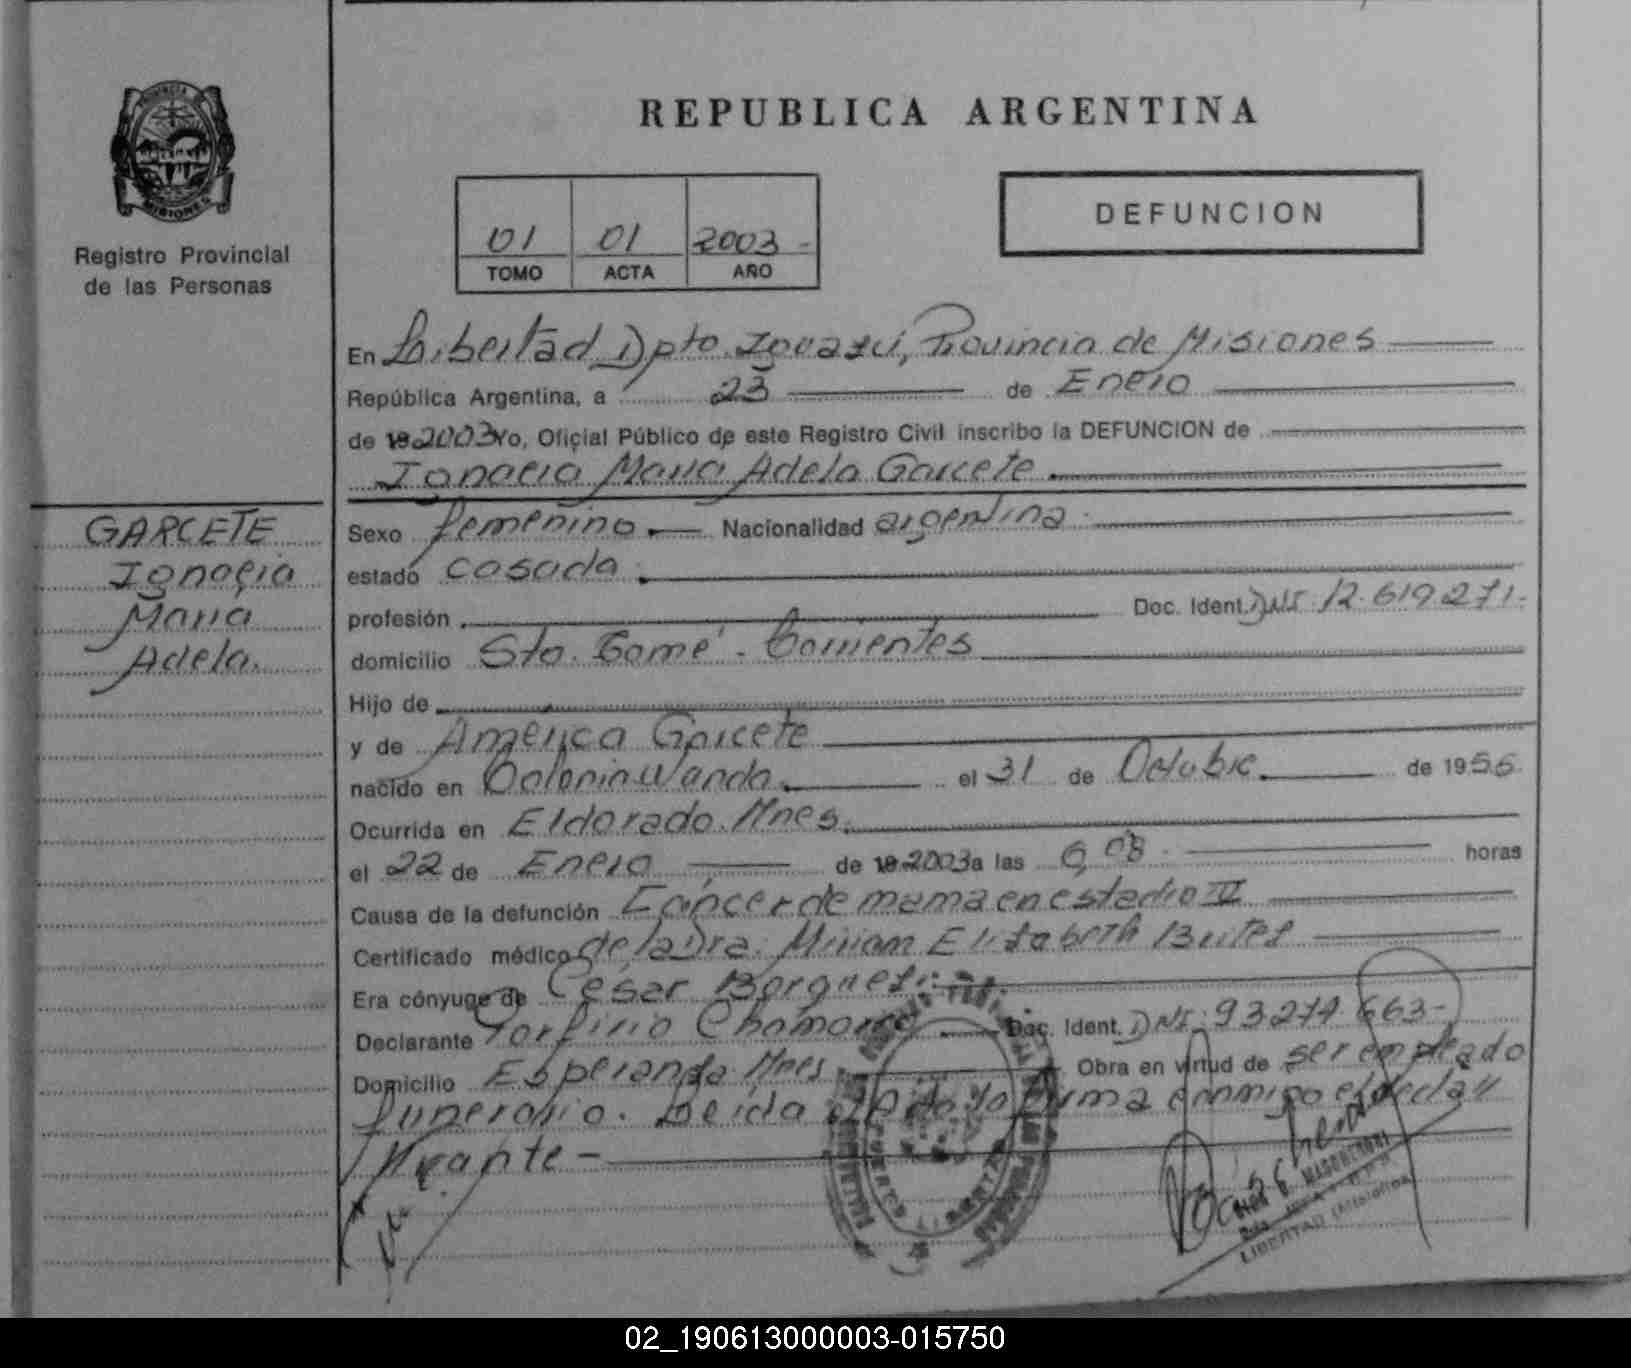 PROVINCIA DE
MISIONES
Registro Provincial
de las Personas
REPUBLICA ARGENTINA
01 01 2003 -
TOMO ACTA AÑO
DEFUNCION
En Libertad Dpto. Iguazú, Provincia de Misiones
República Argentina, a 23 de Enero
de 19 2003 Yo, Oficial Público de este Registro Civil inscribo la DEFUNCION de
Ignacia Maria Adela Garcete
GARCETE
Ignacia
Maria
Adela.
Sexo femenino. Nacionalidad argentina
estado casada
profesión Doc. Ident. DNI 12.619.271.
domicilio Sto. Tomé - Corrientes
Hijo de
y de América Garcete
nacido en Colonia Wanda el 31 de Octubre de 1956
Ocurrida en Eldorado. Mnes.
el 22 de Enero de 19 2003 a las 6,08 horas
Causa de la defunción Cáncer de mama en estadio IV
Certificado médico de la Dra. Miriam Elizabeth
Era cónyuge de César
Declarante Porfirio Chamorro Doc. Ident. DNI. 93.274.663-
Domicilio Esperanza Mnes Obra en virtud de ser empleado
funerario. Leida el acta la firma conmigo el decla
rante -
LIBERTAD (Misiones)
02_190613000003-015750